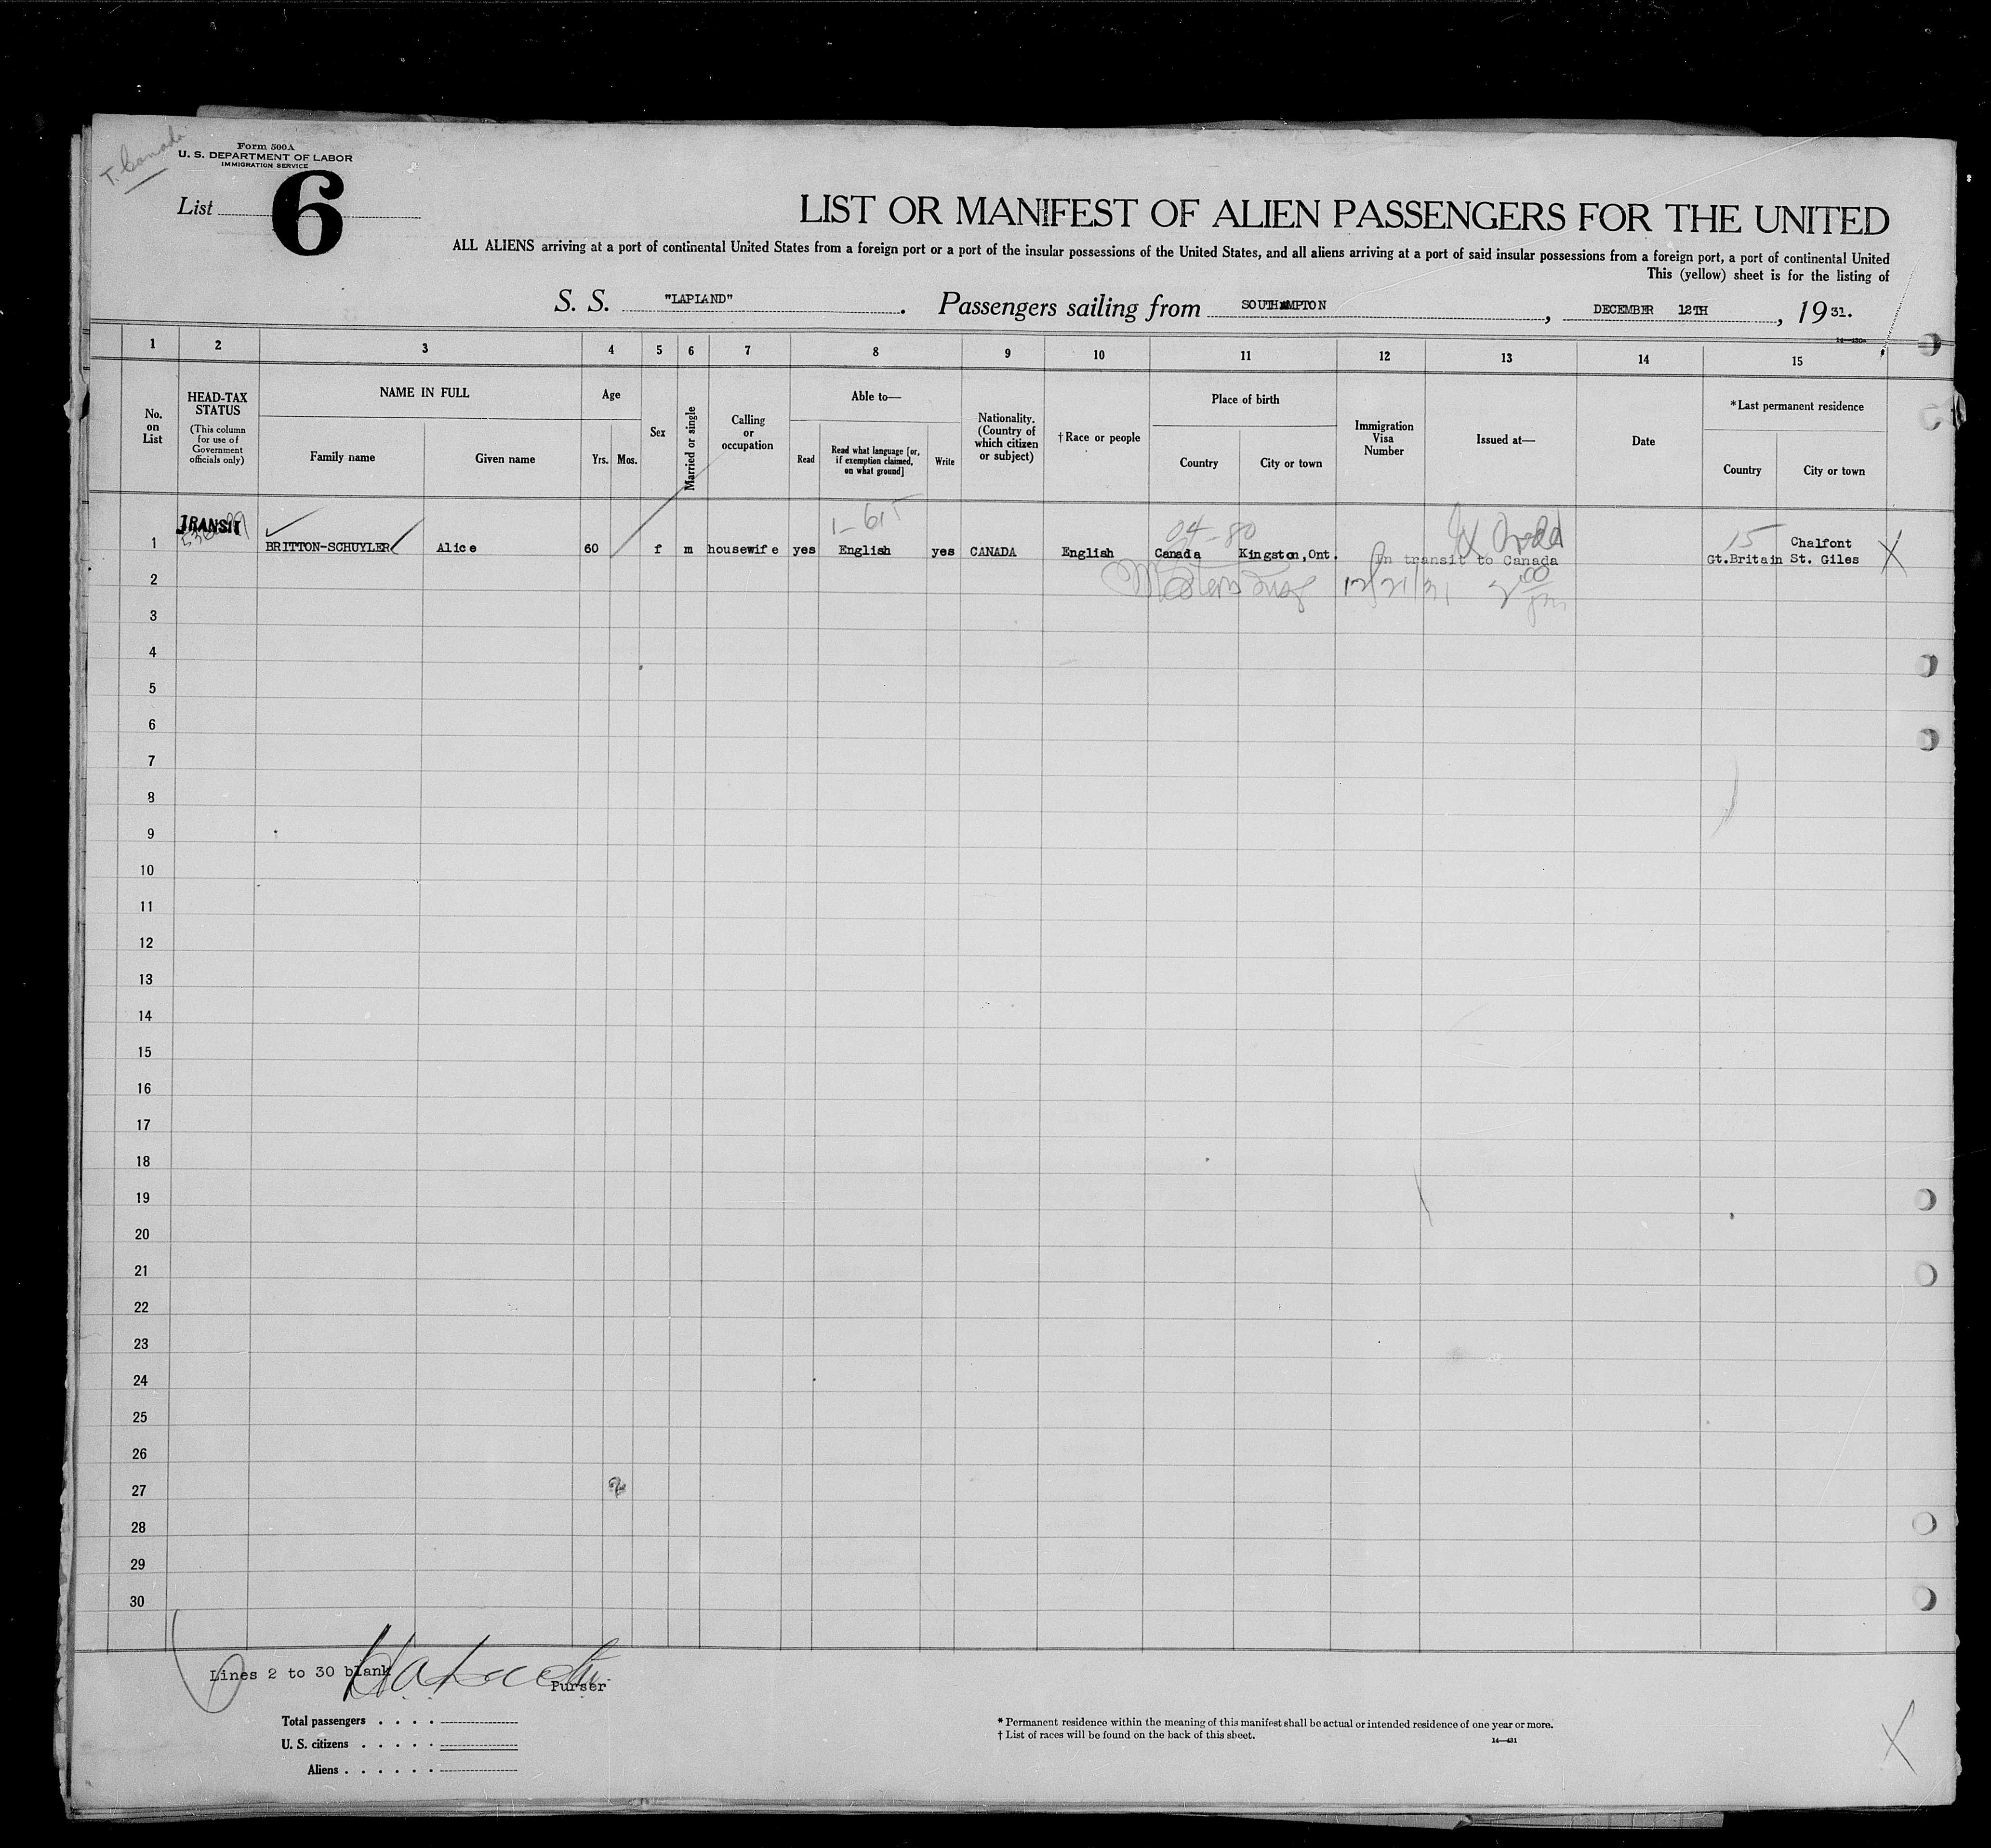 T. Canada
Form 500A
U. S. DEPARTMENT OF LABOR
IMMIGRATION SERVICE
List 6
LIST OR MANIFEST OF ALIEN PASSENGERS FOR THE UNITED
ALL ALIENS arriving at a port of continental United States from a foreign port or a port of the insular possessions of the United States, and all aliens arriving at a port of said insular possessions from a foreign port, a port of continental United
This (yellow) sheet is for the listing of
S. S. "LAPLAND". Passengers sailing from SOUTHAMPTON, DECEMBER 12TH, 1931.
1 2 3 4 5 6 7 8 9 10 11 12 13 14 15
No. on List
HEAD-TAX STATUS
(This column for use of Government officials only)
NAME IN FULL
Family name
Given name
Age
Yrs. Mos.
Sex
Married or single
Calling or occupation
Able to—
Read
Read what language [or, if exemption claimed, on what ground]
Write
Nationality. (Country of which citizen or subject)
†Race or people
Place of birth
Country
City or town
Immigration Visa Number
Issued at—
Date
*Last permanent residence
Country
City or town
TRANSIT
1 BRITTON-SCHUYLER Alice 60 f m housewife yes English yes CANADA English Canada Kingston,Ont. In transit to Canada Gt.Britain Chalfont St. Giles X
12/21/31 2 00 pm
2
3
4
5
6
7
8
9
10
11
12
13
14
15
16
17
18
19
20
21
22
23
24
25
26
27
28
29
30
Lines 2 to 30 blank
Purser
Total passengers . . . .
U. S. citizens . . . . .
Aliens . . . . . .
* Permanent residence within the meaning of this manifest shall be actual or intended residence of one year or more.
† List of races will be found on the back of this sheet.
14—431
X